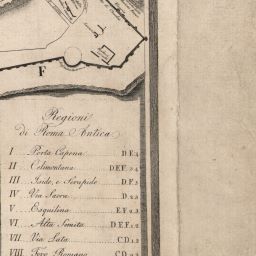 F
Regioni
di Roma Antica
I Porta Capena D E 4
II Celimontana D E F 3 4
III Iside, e Serapide D F 3
IV Via Sacra D 2 3
V Esquilina E F 2 3
VI Alta Semita D E F 1 2
VII Via Lata C D 1 2
VIII Foro Romano C D 2 3